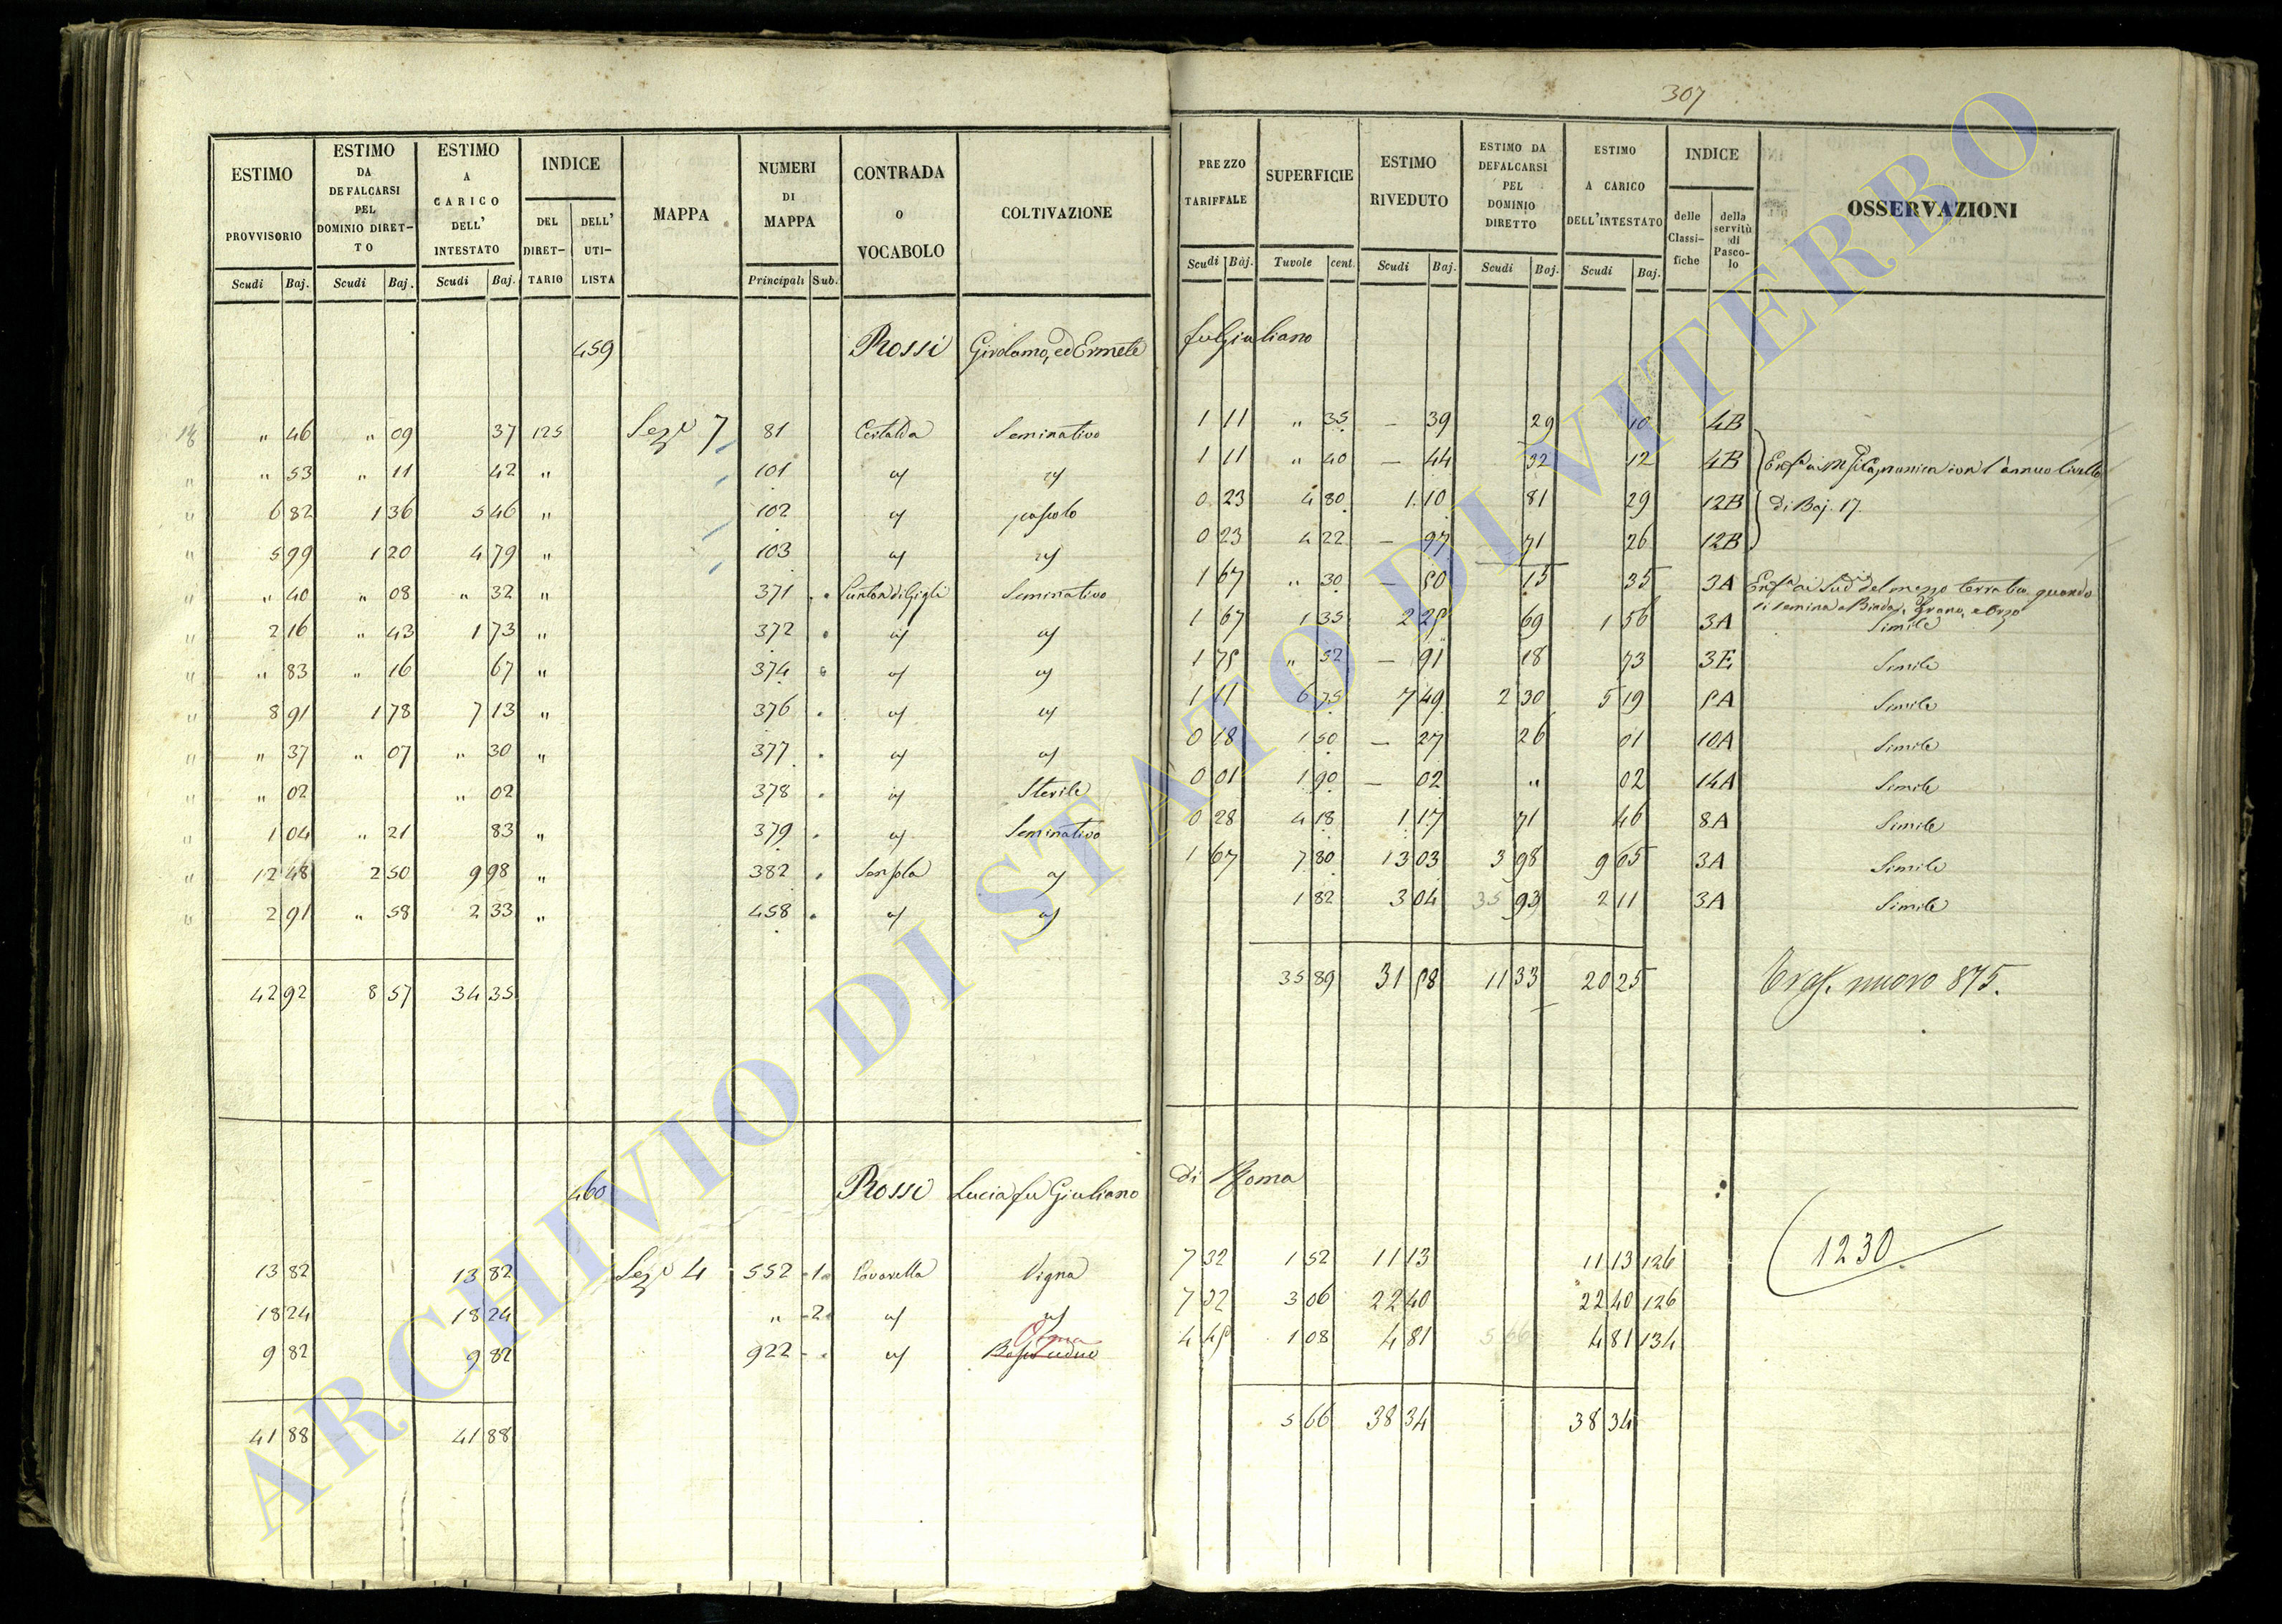 307
ESTIMO PROVVISORIO Scudi Baj.
ESTIMO DA DEFALCARSI PEL DOMINIO DIRETTO Scudi Baj.
ESTIMO A CARICO DELL' INTESTATO Scudi Baj.
INDICE DEL DIRETTARIO DELL' UTILISTA
MAPPA
NUMERI DI MAPPA Principali Sub.
CONTRADA O VOCABOLO
COLTIVAZIONE
PREZZO TARIFFALE Scudi Baj.
SUPERFICIE Tavole cent.
ESTIMO RIVEDUTO Scudi Baj.
ESTIMO DA DEFALCARSI PEL DOMINIO DIRETTO Scudi Baj.
ESTIMO A CARICO DELL'INTESTATO Scudi Baj.
INDICE delle Classifiche della servitù di Pascolo
OSSERVAZIONI
459 Rossi Girolamo, ed Ermete fu Giuliano
18 " 46 " 09 37 125 Sez.e 7 81 Seminativo 1 11 " 35 — 39 29 10 4B
" " 53 " 11 42 " 101 1 11 " 40 — 44 32 12 4B con l'annuo livello
" 6 82 1 36 5 46 " 102 pascolo 0 23 4 80 1 10 81 29 12B di Baj. 17
" 5 99 1 20 4 79 " 103 0 23 4 22 — 97 71 26 12B
" " 40 " 08 " 32 " 371 Seminativo 1 67 " 30 — 50 15 35 3A del mezzo terratico quando
si semina a Biada, Grano, e Orzo
" 2 16 " 43 1 73 " 372 1 67 1 35 2 25 69 1 56 3A Simile
" " 83 " 16 67 " 374 1 75 " 52 — 91 18 73 3E Simile
" 8 91 1 78 7 13 " 376 1 11 6 75 7 49 2 30 5 19 5A Simile
" " 37 " 07 " 30 " 377 0 18 1 50 — 27 26 01 10A Simile
" " 02 " 02 378 Sterile 0 01 1 90 — 02 " 02 14A Simile
" 1 04 " 21 83 " 379 Seminativo 0 28 4 18 1 17 71 46 8A Simile
" 12 48 2 50 9 98 " 382 1 67 7 80 13 03 3 98 9 05 3A Simile
" 2 91 " 58 2 33 " 458 1 82 3 04 93 2 11 3A Simile
42 92 8 57 34 35 35 89 31 58 11 33 20 25 nuovo 875.
460 Rossi Lucia fu Giuliano di Roma
1230
13 82 13 82 Sez.e 4 552 1 Vigna 7 32 1 52 11 13 11 13 126
18 24 18 24 " 2 7 32 3 06 22 40 22 40 126
9 82 9 82 922 4 45 1 08 4 81 4 81 134
41 88 41 88 5 66 38 34 38 34
ARCHIVIO DI STATO DI VITERBO